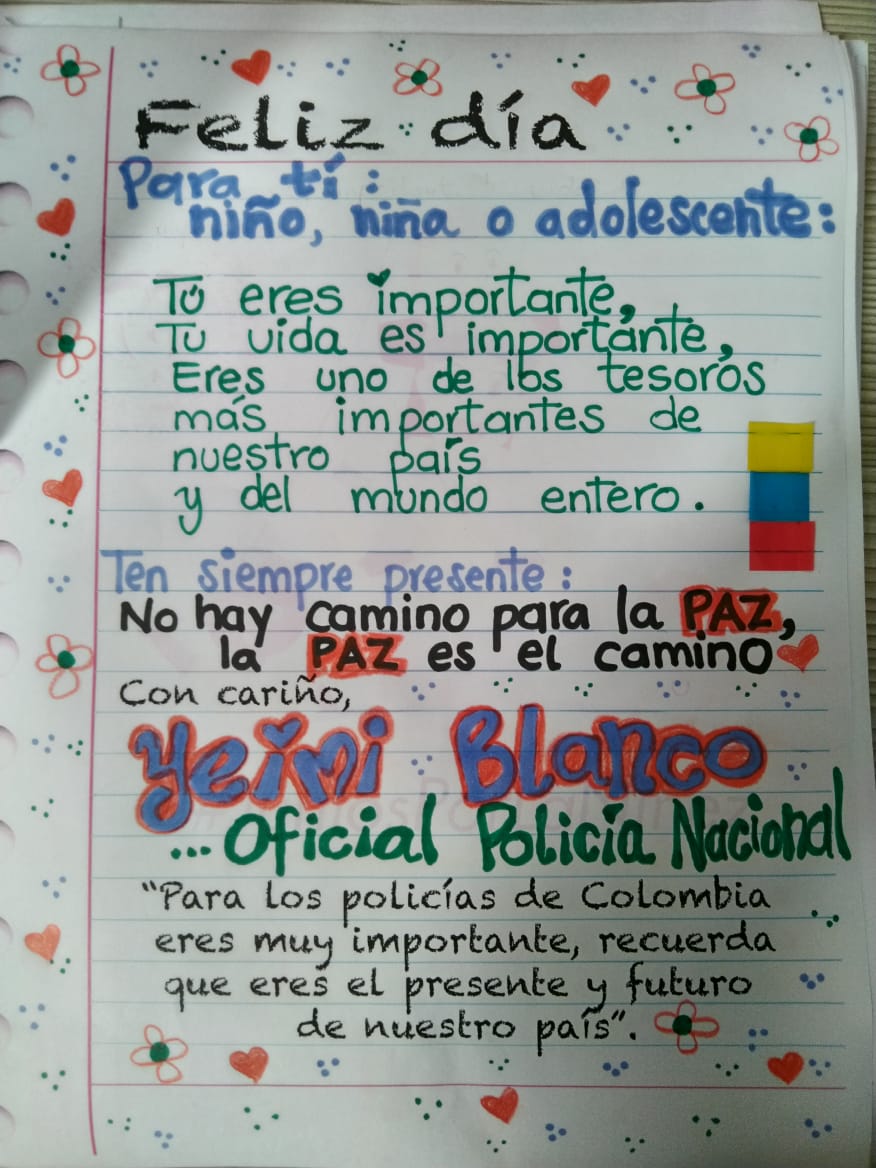 Feliz día
Para tí:
niño, niña o adolescente:
Tú eres importante,
Tu vida es importante,
Eres uno de los tesoros
más importantes de
nuestro país
y del mundo entero.
Ten siempre presente:
No hay camino para la PAZ,
la PAZ es el camino
Con cariño,
Yeimi Blanco
...Oficial Policía Nacional
"Para los policías de Colombia
eres muy importante, recuerda
que eres el presente y futuro
de nuestro país".